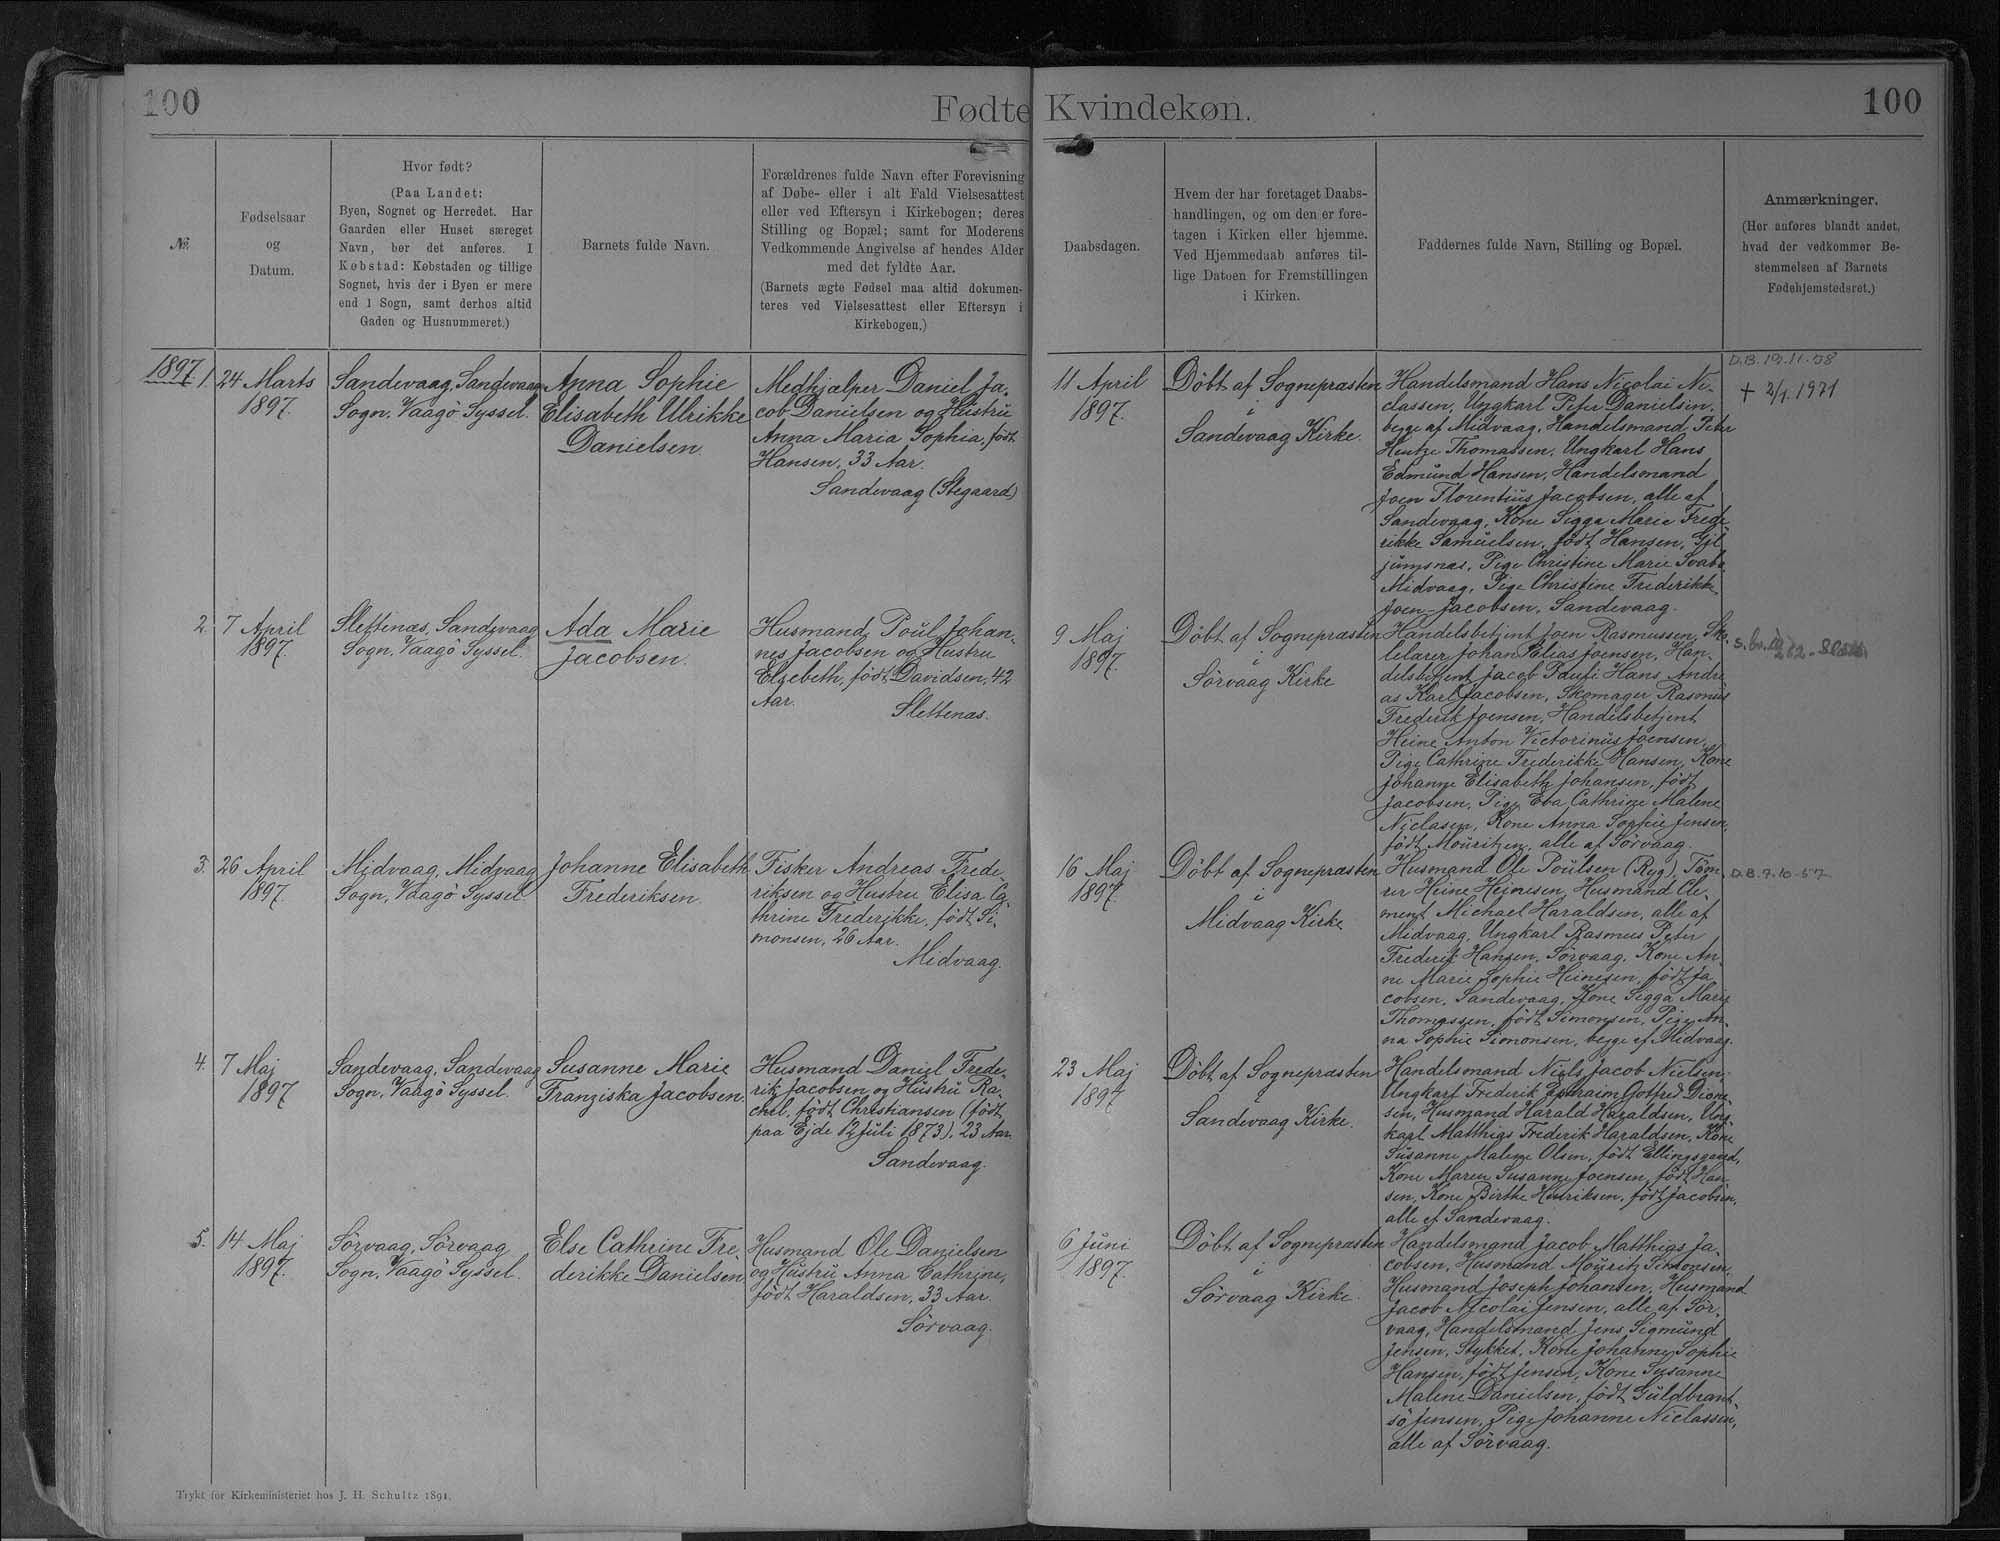 100
Fødte Kvindekøn.
100
№.
Fødselsaar
og
Datum.
Hvor født?
(Paa Landet:
Byen, Sognet og Herredet. Har
Gaarden eller Huset særeget
Navn, bør det anføres. I
Købstad: Købstaden og tillige
Sognet, hvis der i Byen er mere
end 1 Sogn, samt derhos altid
Gaden og Husnummeret.)
Barnets fulde Navn.
Forældrenes fulde Navn efter Forevisning
af Døbe- eller i alt Fald Vielsesattest
eller ved Eftersyn i Kirkebogen; deres
Stilling og Bopæl; samt for Moderens
Vedkommende Angivelse af hendes Alder
med det fyldte Aar.
(Barnets ægte Fødsel maa altid dokumen-
teres ved Vielsesattest eller Eftersyn i
Kirkebogen.)
Daabsdagen.
Hvem der har foretaget Daabs-
handlingen, og om den er fore-
tagen i Kirken eller hjemme.
Ved Hjemmedaab anføres til-
lige Datoen for Fremstillingen
i Kirken.
Faddernes fulde Navn, Stilling og Bopæl.
Anmærkninger.
(Her anføres blandt andet,
hvad der vedkommer Be-
stemmelsen af Barnets
Fødehjemstedsret.)
1897
1.
24 Marts
1897.
Sandevaag, Sandevaag
Sogn, Vaagö Syssel.
Anna Sophie
Elisabeth Ulrikke
Danielsen.
Medhjælper Daniel Ja-
cob Danielsen og Hustru
Anna Maria Sophia, födt
Hansen, 33 Aar.
Sandevaag (Stegaard)
11 April
1897.
Döbt af Sognepræsten
i
Sandevaag Kirke.
Handelsmand Hans Nicolai Ni-
classen, Ungkarl Peter Danielsen,
begge af Midvaag, Handelsmand Peter
Hentze Thomassen, Ungkarl Hans
Edmund Hansen, Handelsmand
Joen Florentius Jacobsen, alle af
Sandevaag, Kone Sigga Marie Frede-
rikke Samuelsen, födt Hansen, Gil-
jumsnæs, Pige Christine Marie Svabo
Midvaag, Pige Christine Frederikke
Joen-Jacobsen, Sandevaag.
D.B. 19.11.58
+ 2/1. 1971
2.
7 April
1897.
Slettenæs, Sandevaag
Sogn, Vaagö Syssel.
Ada Marie
Jacobsen.
Husmand Poul Johan-
nes Jacobsen og Hustru
Elsebeth, födt Davidsen, 42
Aar.
Slettenæs.
9 Maj
1897.
Döbt af Sognepræsten
i
Sörvaag Kirke
Handelsbetjent Joen Rasmussen, Sko-
lelærer Johan Elias Joensen, Han-
delsbetjent Jacob Pauli Hans Andre-
as Karl Jacobsen, Skomager Rasmus
Frederik Joensen, Handelsbetjent
Heine Anton Victorinus Joensen,
Pige Cathrine Frederikke Hansen, Kone
Johanne Elisabeth Johansen, födt
Jacobsen, Pige Eva Cathrine Malene
Niclasen, Kone Anna Sophie Jensen,
födt Mouritzen, alle af Sörvaag.
3.
26 April
1897.
Midvaag, Midvaag
Sogn, Vaagö Syssel
Johanne Elisabeth
Frederiksen.
Fisker Andreas Frede-
riksen og Hustru Elisa Ca-
thrine Frederikke, födt Si-
monsen, 26 Aar.
Midvaag.
16 Maj
1897.
Döbt af Sognepræsten
i
Midvaag Kirke
Husmand Ole Poulsen (Ryg), Töm-
rer Heine Heinesen, Husmand Cle-
ment Michael Haraldsen, alle af
Midvaag, Ungkarl Rasmus Peter
Frederik Hansen, Sörvaag, Kone An-
ne Marie Sophie Heinesen, födt Ja-
cobsen, Sandevaag, Kone Sigga Marie
Thomassen, födt Simonsen, Pige An-
na Sophie Simonsen, begge af Midvaag.
D.B. 7.10.57.
4.
7 Maj
1897
Sandevaag, Sandevaag
Sogn, Vaagö Syssel.
Susanne Marie
Franziska Jacobsen.
Husmand Daniel Frede-
rik Jacobsen og Hustru Ra-
chel, födt Christiansen (födt
paa Ejde 12 Juli 1873), 23 Aar.
Sandevaag.
23 Maj
1897
Döbt af Sognepræsten
i
Sandevaag Kirke.
Handelsmand Niels Jacob Nielsen,
Ungkarl Frederik Ephraim Gotfred Dione-
sen, Husmand Harald Haraldsen, Ung-
karl Matthias Frederik Haraldsen, Kone
Susanne Malene Olsen, födt Ellingsgaard,
Kone Maren Susanne Joensen, födt Han-
sen, Kone Birthe Henriksen, födt Jacobsen,
alle af Sandevaag.
5.
14 Maj
1897.
Sörvaag, Sörvaag
Sogn, Vaagö Syssel.
Else Cathrine Fre-
derikke Danielsen.
Husmand Ole Danielsen
og Hustru Anna Cathrine,
födt Haraldsen, 33 Aar.
Sörvaag.
6 Juni
1897.
Döbt af Sognepræsten
i
Sörvaag Kirke.
Handelsmand Jacob Matthias Ja-
cobsen, Husmand Mouritz Simonsen,
Husmand Joseph Johansen, Husmand
Jacob Nicolai Jensen, alle af Sör-
vaag, Handelsmand Jens Sigmund
Jensen, Stykket, Kone Johanne Sophie
Hansen, födt Jensen, Kone Susanne
Malene Danielsen, födt Guldbrant-
sö Jensen, Pige Johanne Niclassen,
alle af Sörvaag.
Trykt for Kirkeministeriet hos J. H. Schultz 1891.